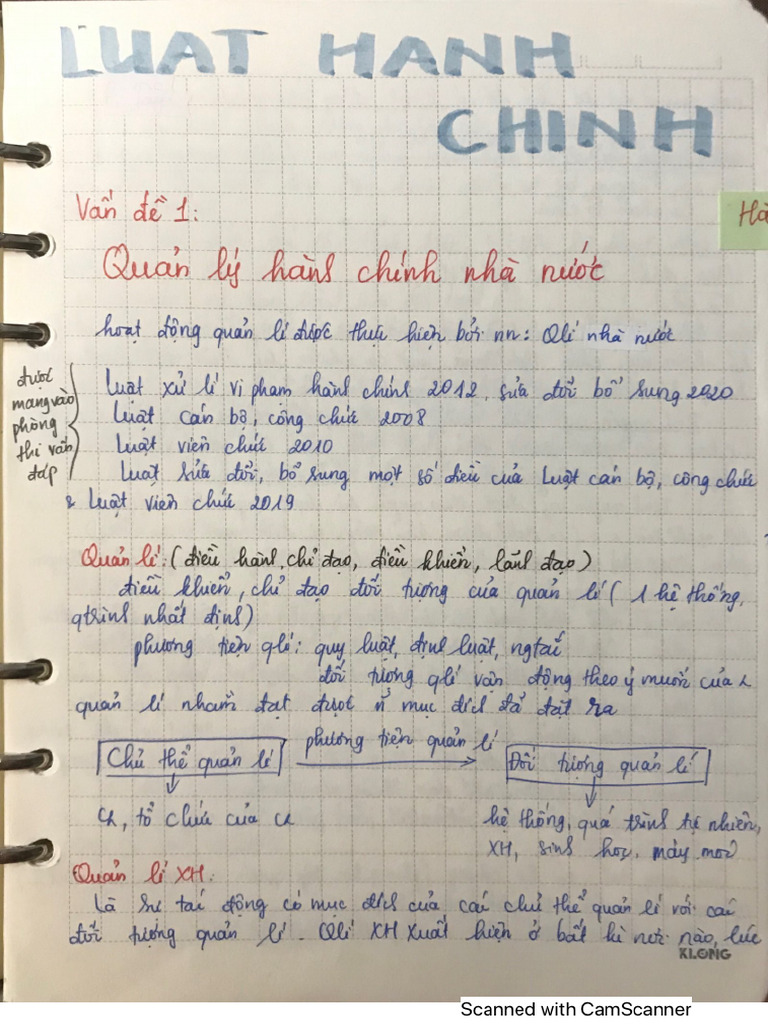 LUAT HANH
CHINH
Vấn đề 1:
Hà
Quản lý hành chính nhà nước
hoạt động quản lí được thực hiện bởi nn: Qlí nhà nước
được
mang vào
phòng
thi vấn
đáp
Luật xử lí vi phạm hành chính 2012, sửa đổi bổ sung 2020
Luật cán bộ, công chức 2008
Luật viên chức 2010
Luật sửa đổi, bổ sung một số điều của Luật cán bộ, công chức
& Luật viên chức 2019
Quản lí: (điều hành, chỉ đạo, điều khiển, lãnh đạo)
điều khiển, chỉ đạo đối tượng của quản lí (1 hệ thống,
qtrình nhất định)
phương tiện qlí: quy luật, định luật, ngtắc
đối tượng qlí vận động theo ý muốn của
quản lí nhằm đạt được mục đích đã đặt ra
Chủ thể quản lí
phương tiện quản lí
Đối tượng quản lí
, tổ chức của
hệ thống, quá trình tự nhiên,
XH, sinh học, máy móc
Quản lí XH:
Là sự tác động có mục đích của các chủ thể quản lí với các
đối tượng quản lí. Qlí XH xuất hiện ở bất kì nơi nào, lúc
KLONG
Scanned with CamScanner